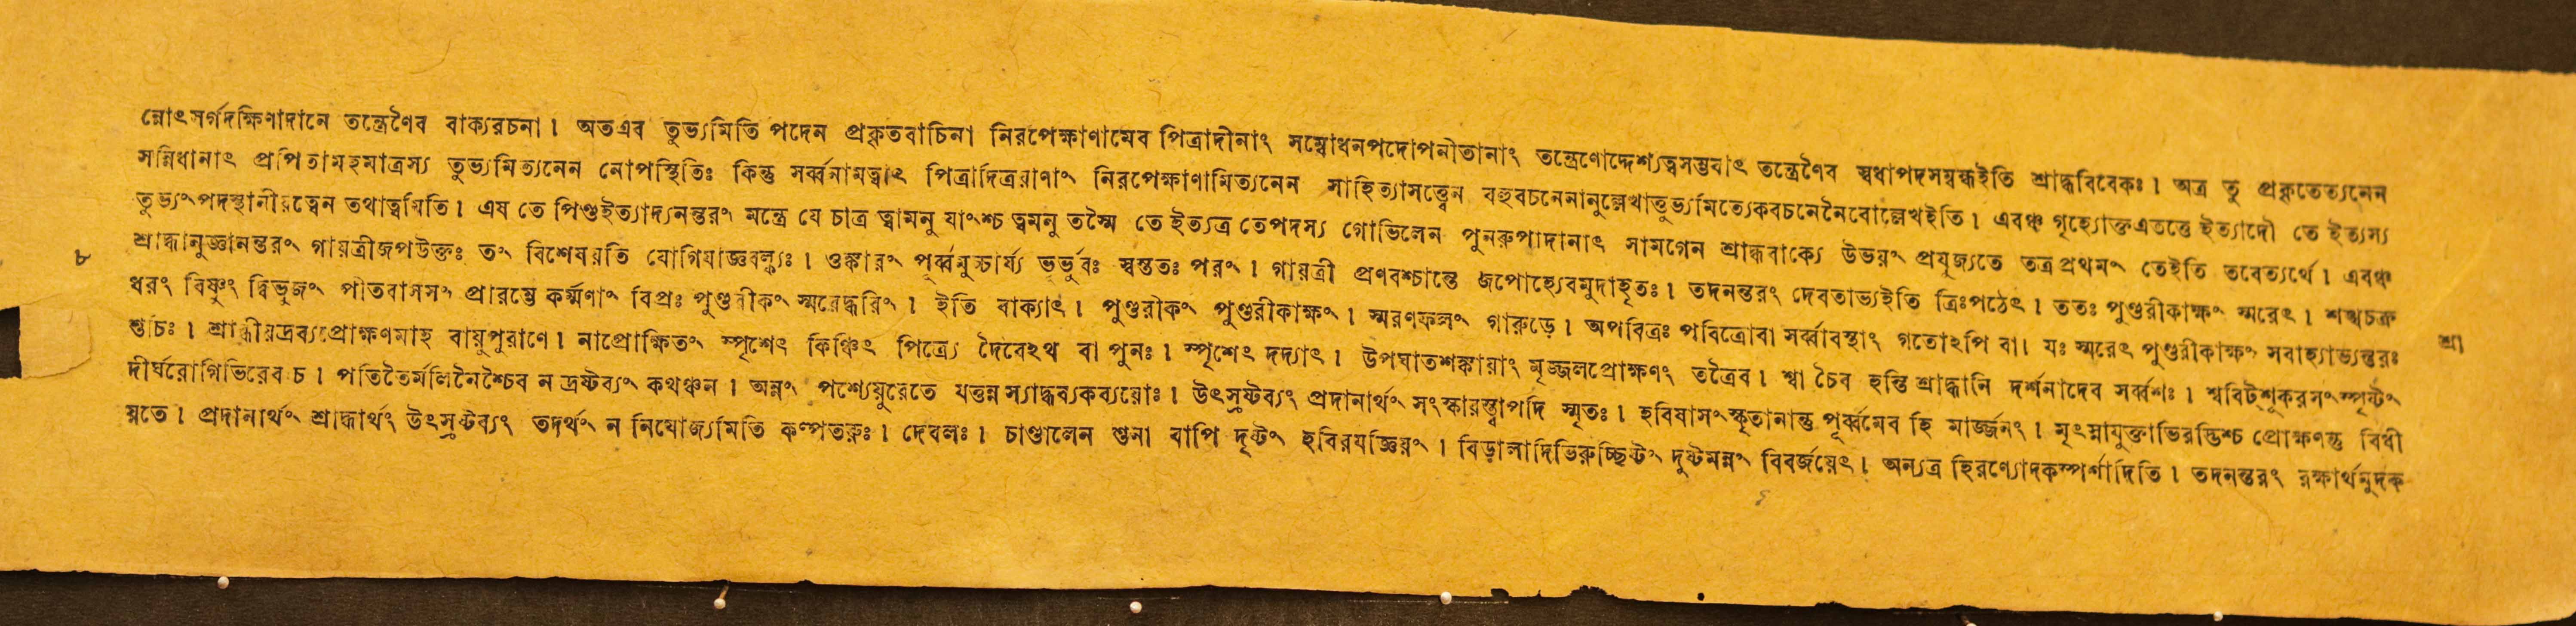 ন্নোৎসর্গদক্ষিণাদানে তন্ত্রেণৈব বাক্যরচনা। অতএব তুভ্যমিতি পদেন প্রকৃতবাচিনা নিরপেক্ষাণামেব পিত্রাদীনাং সম্বোধনপদোপনীতানাং তন্ত্রেণোদ্দেশ্যত্বসম্ভবাৎ তন্ত্রেণৈব স্বধাপদসম্বন্ধইতি শ্রাদ্ধবিবেকঃ। অত্র তু প্রকৃতেত্যনেন
সন্নিধানাৎ প্রপিতামহমাত্রস্য তুভ্যমিত্যনেন নোপস্থিতিঃ কিন্তু সর্ব্বনামত্বাৎ পিত্রাদিত্রয়াণাং নিরপেক্ষাণামিত্যনেন সাহিত্যাসত্ত্বেন বহুবচনেনানুল্লেখাত্তুভ্যমিত্যেকবচনেনৈবোল্লেখইতি। এবঞ্চ গৃহ্যোক্তএতত্তে ইত্যাদৌ তে ইত্যস্য
তুভ্যংপদস্থানীয়ত্বেন তথাত্বমিতি। এষ তে পিণ্ডইত্যাদ্যনন্তরং মন্ত্রে যে চাত্র ত্বামনু যাংশ্চ ত্বমনু তস্মৈ তে ইত্যত্র তেপদস্য গোভিলেন পুনরুপাদানাৎ সামগেন শ্রাদ্ধবাক্যে উভয়ং প্রযুজ্যতে তত্র প্রথমং তেইতি তবেত্যর্থে। এবঞ্চ
শ্রাদ্ধানুজ্ঞানন্তরং গায়ত্রীজপউক্তঃ তং বিশেষয়তি যোগিযাজ্ঞবল্ক্যঃ। ওঙ্কারং পূর্ব্বমুচ্চার্য্য ভূর্ভুবঃ স্বস্ততঃ পরং। গায়ত্রী প্রণবশ্চান্তে জপোহ্যেবমুদাহৃতঃ। তদনন্তরং দেবতাভ্যইতি ত্রিঃপঠেৎ। ততঃ পুণ্ডরীকাক্ষং স্মরেৎ। শঙ্খচক্র
ধরং বিষ্ণুং দ্বিভুজং পীতবাসসং প্রারম্ভে কর্ম্মণাং বিপ্রঃ পুণ্ডরীকং স্মরেদ্ধরিং। ইতি বাক্যাৎ। পুণ্ডরীকং পুণ্ডরীকাক্ষং। স্মরণফলং গারুড়ে। অপবিত্রঃ পবিত্রোবা সর্ব্বাবস্থাং গতোঽপি বা। যঃ স্মরেৎ পুণ্ডরীকাক্ষং সবাহ্যাভ্যন্তরঃ
শুচিঃ। শ্রাদ্ধীয়দ্রব্যপ্রোক্ষণমাহ বায়ুপুরাণে। নাপ্রোক্ষিতং স্পৃশেৎ কিঞ্চিৎ পিত্র্যে দৈবেঽথ বা পুনঃ। স্পৃশেৎ দদ্যাৎ। উপঘাতশঙ্কায়াং মৃজ্জলপ্রোক্ষণং তত্রৈব। শ্বা চৈব হন্তি শ্রাদ্ধানি দর্শনাদেব সর্ব্বশঃ। শ্ববিট্‌শূকরসংস্পৃষ্টং
দীর্ঘরোগিভিরেব চ। পতিতৈর্মলিনৈশ্চৈব ন দ্রষ্টব্যং কথঞ্চন। অন্নং পশ্যেয়ুরেতে যত্তন্ন স্যাদ্ধব্যকব্যয়োঃ। উৎসৃষ্টব্যং প্রদানার্থং সংস্কারস্ত্বাপদি স্মৃতঃ। হবিষাসংস্কৃতানান্তু পূর্ব্বমেব হি মার্জ্জনং। মৃৎস্নাযুক্তাভিরদ্ভিশ্চ প্রোক্ষণন্তু বিধী
য়তে। প্রদানার্থং শ্রাদ্ধার্থং উৎসৃষ্টব্যং তদর্থং ন নিযোজ্যমিতি কল্পতরুঃ। দেবলঃ। চাণ্ডালেন শুনা বাপি দৃষ্টং হবিরযজ্ঞিয়ং। বিড়ালাদিভিরুচ্ছিষ্টং দুষ্টমন্নং বিবর্জয়েৎ। অন্যত্র হিরণ্যোদকস্পর্শাদিতি। তদনন্তরং রক্ষার্থমুদক
৮
শ্রা